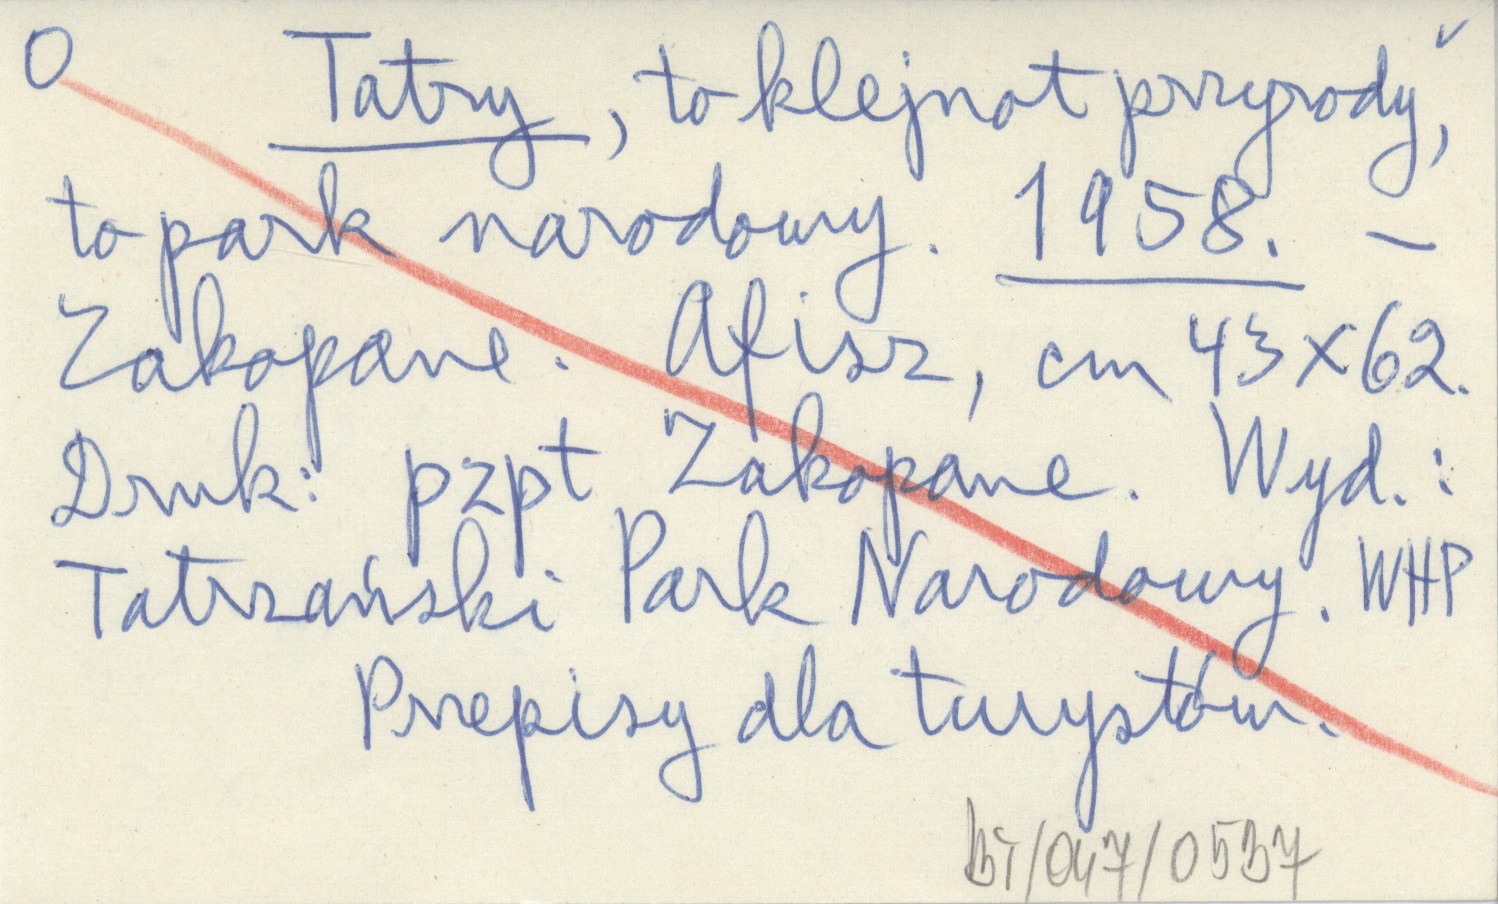 O Tatry, to klejnot przyrody,
to park narodowy. 1958. –
Zakopane. Afisz, cm 43x62.
Druk: PZPT Zakopane. Wyd.:
Tatrzański Park Narodowy. WHP
Przepisy dla turystów.
BT/047/0537